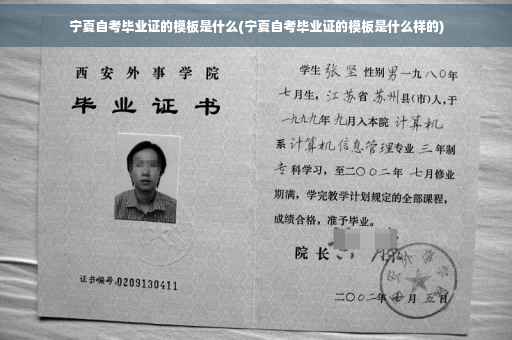 宁夏自考毕业证的模板是什么(宁夏自考毕业证的模板是什么样的)
西安外事学院
毕业证书
证书编号:0209130411
学生 张坚 性别 男 一九八〇年
七月生,江苏省 苏州县(市)人,于
一九九九年 九月入本院 计算机
系 计算机信息管理专业 三 年制
专科学习,至二〇〇二年 七月修业
期满,学完教学计划规定的全部课程,
成绩合格,准予毕业。
院长
二〇〇二年 月五日